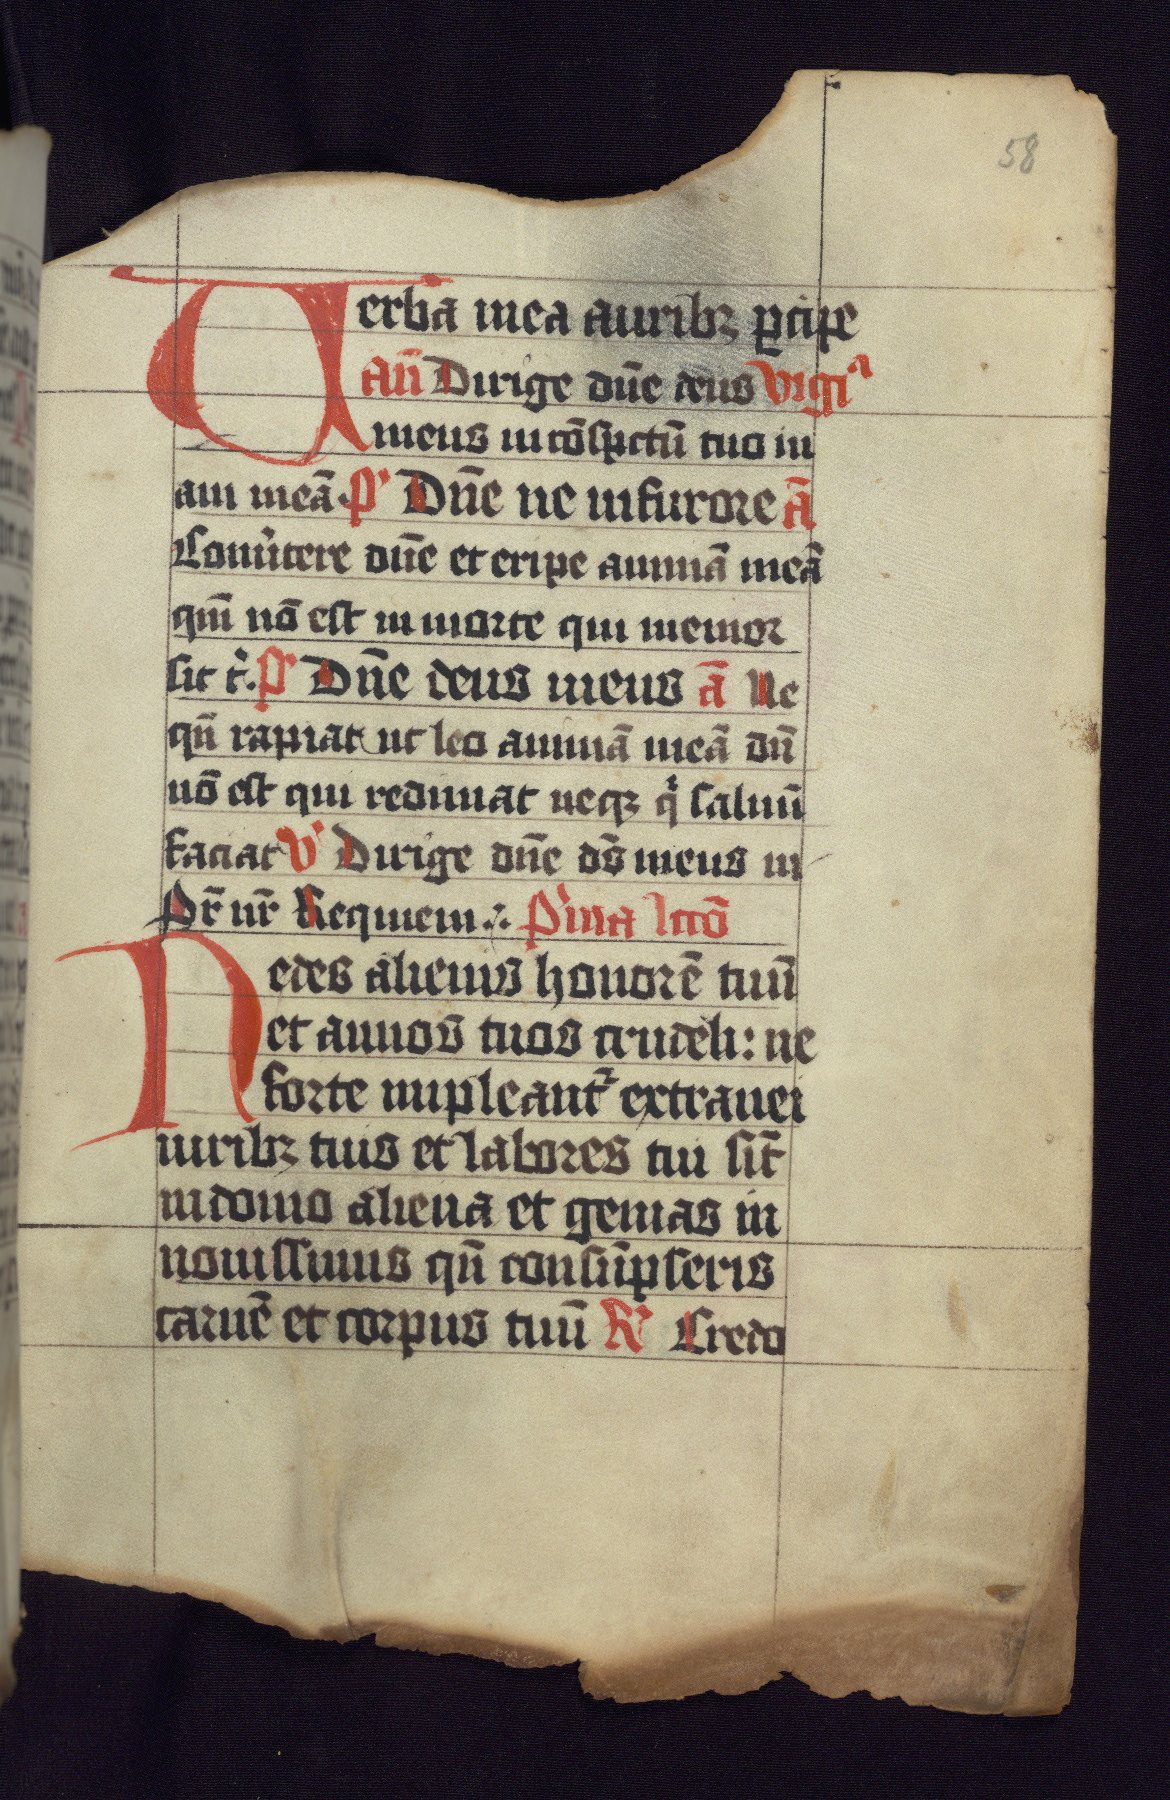 58
Verba mea auribꝫ ꝑcipe
an̄ Dirige dn̄e deus vigiᵃ
meus in cōspectū tuo in
am meā. ps Dn̄e ne in furore ā
Conūtere dn̄e et eripe animā meā
qm̄ nō est in morte qui memor
sit t̄. ps Dn̄e deus meus ā Ne
qn̄ rapiat ut leo animā meā dn̄
nō est qui redimat neqꝫ qͥ saluū
faciat v Dirige dn̄e ds̄ meus in
Pr̄ nr̄ Requiem ∴ Pͥma lccō
Nedes alienis honorē tuū
et annos tuos crudeli: ne
forte impleantᷣ extranei
uiribꝫ tuis et labores tui sīt
in domo aliena et gemas in
nouissimis qn̄ consūpseris
carnē et corpus tuū ℟ Credo